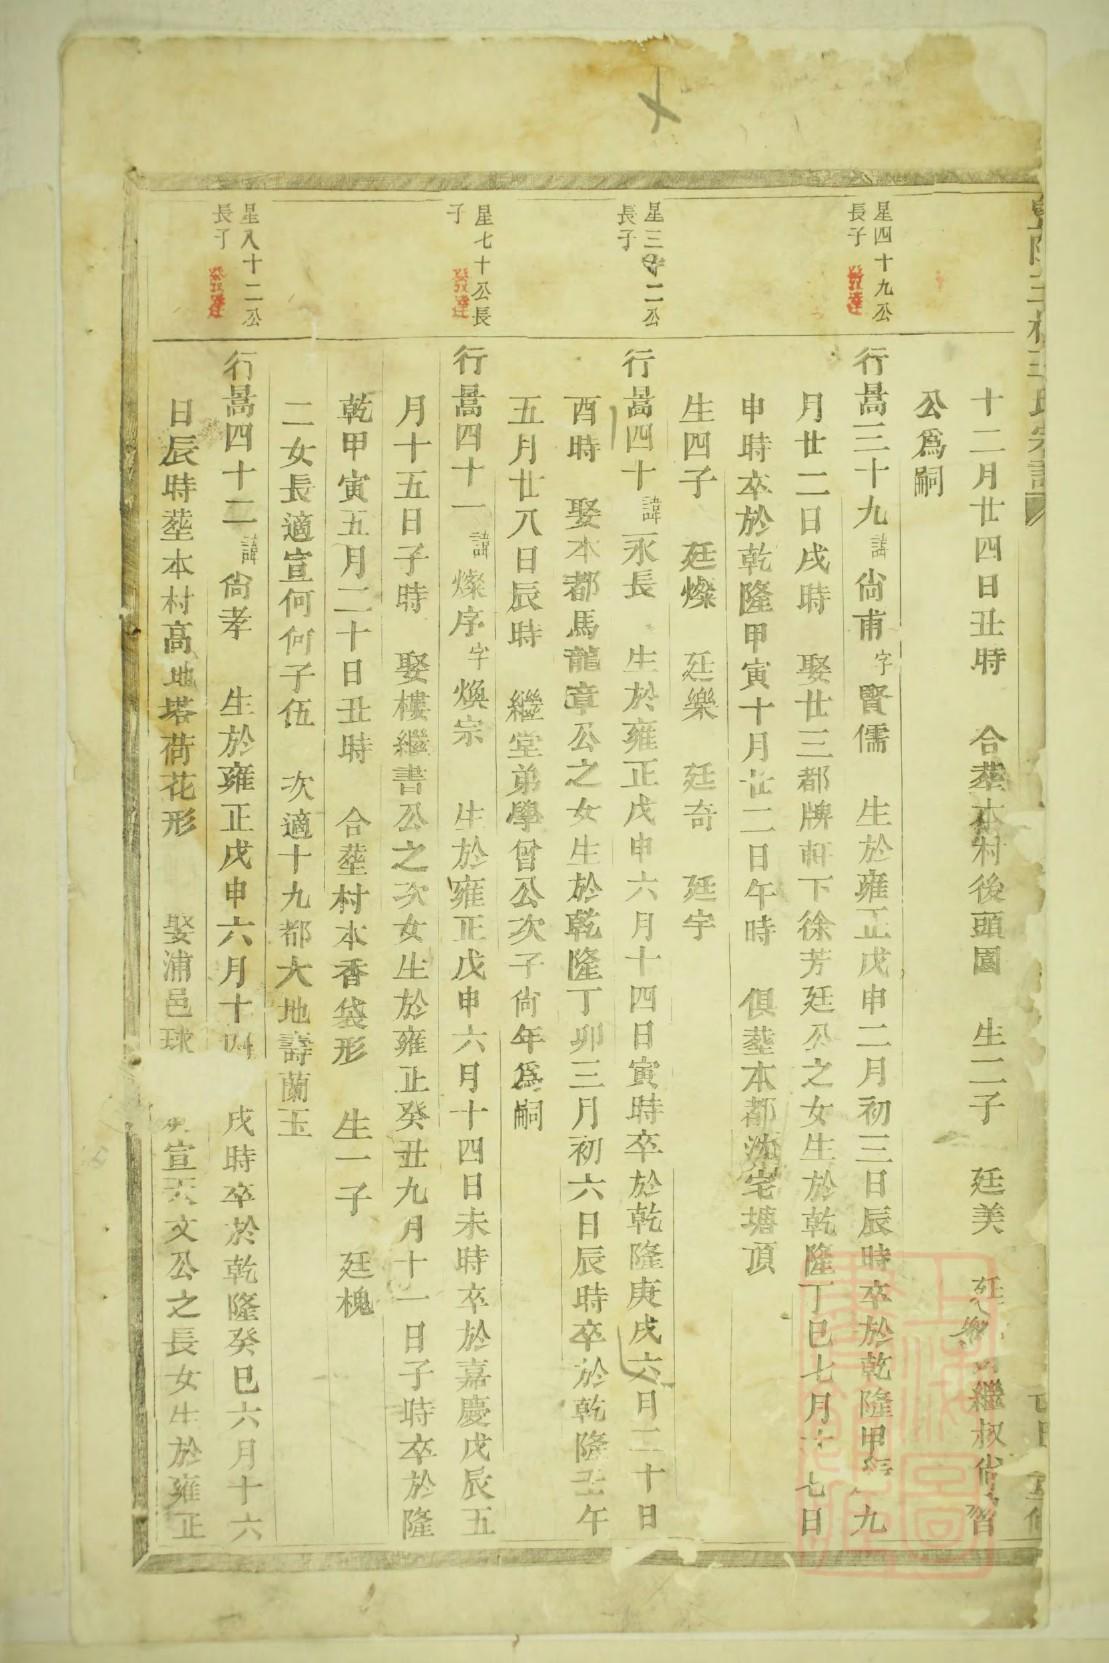 十二月廿四日丑時　合塟本村後頭園　生二子　廷美　廷　繼叔尙
公爲嗣
星四十九公
長子
發達
行暠三十九諱尙甫字賢儒　生於雍正戊申二月初三日辰時卒於乾隆甲　九
月廿二日戌時　娶廿三都牌軒下徐芳廷公之女生於乾隆丁巳七月十七日
申時卒於乾隆甲寅十月廿二日午時　俱塟本都沈宅塘頂
生四子　廷燦　廷樂　廷奇　廷宇
星三十二公
長子
行暠四十諱永長　生於雍正戊申六月十四日寅時卒於乾隆庚戌六月二十日
酉時　娶本都馬龍章公之女生於乾隆丁卯三月初六日辰時卒於乾隆壬午
五月廿八日辰時　繼堂弟學曾公次子尙年爲嗣
星七十公長
子
發達
行暠四十一諱燦序字煥宗　生於雍正戊申六月十四日未時卒於嘉慶戊辰五
月十五日子時　娶樓繼書公之次女生於雍正癸丑九月十一日子時卒於隆
乾甲寅五月二十日丑時　合塟村本香袋形　生一子　廷槐
二女長適宣何何子伍　次適十九都大地壽蘭玉
星八十二公
長子
發達
行暠四十二諱尙孝　生於雍正戊申六月十四　戌時卒於乾隆癸巳六月十六
日辰時塟本村高地塔荷花形　娶浦邑球　宣天文公之長女生於雍正